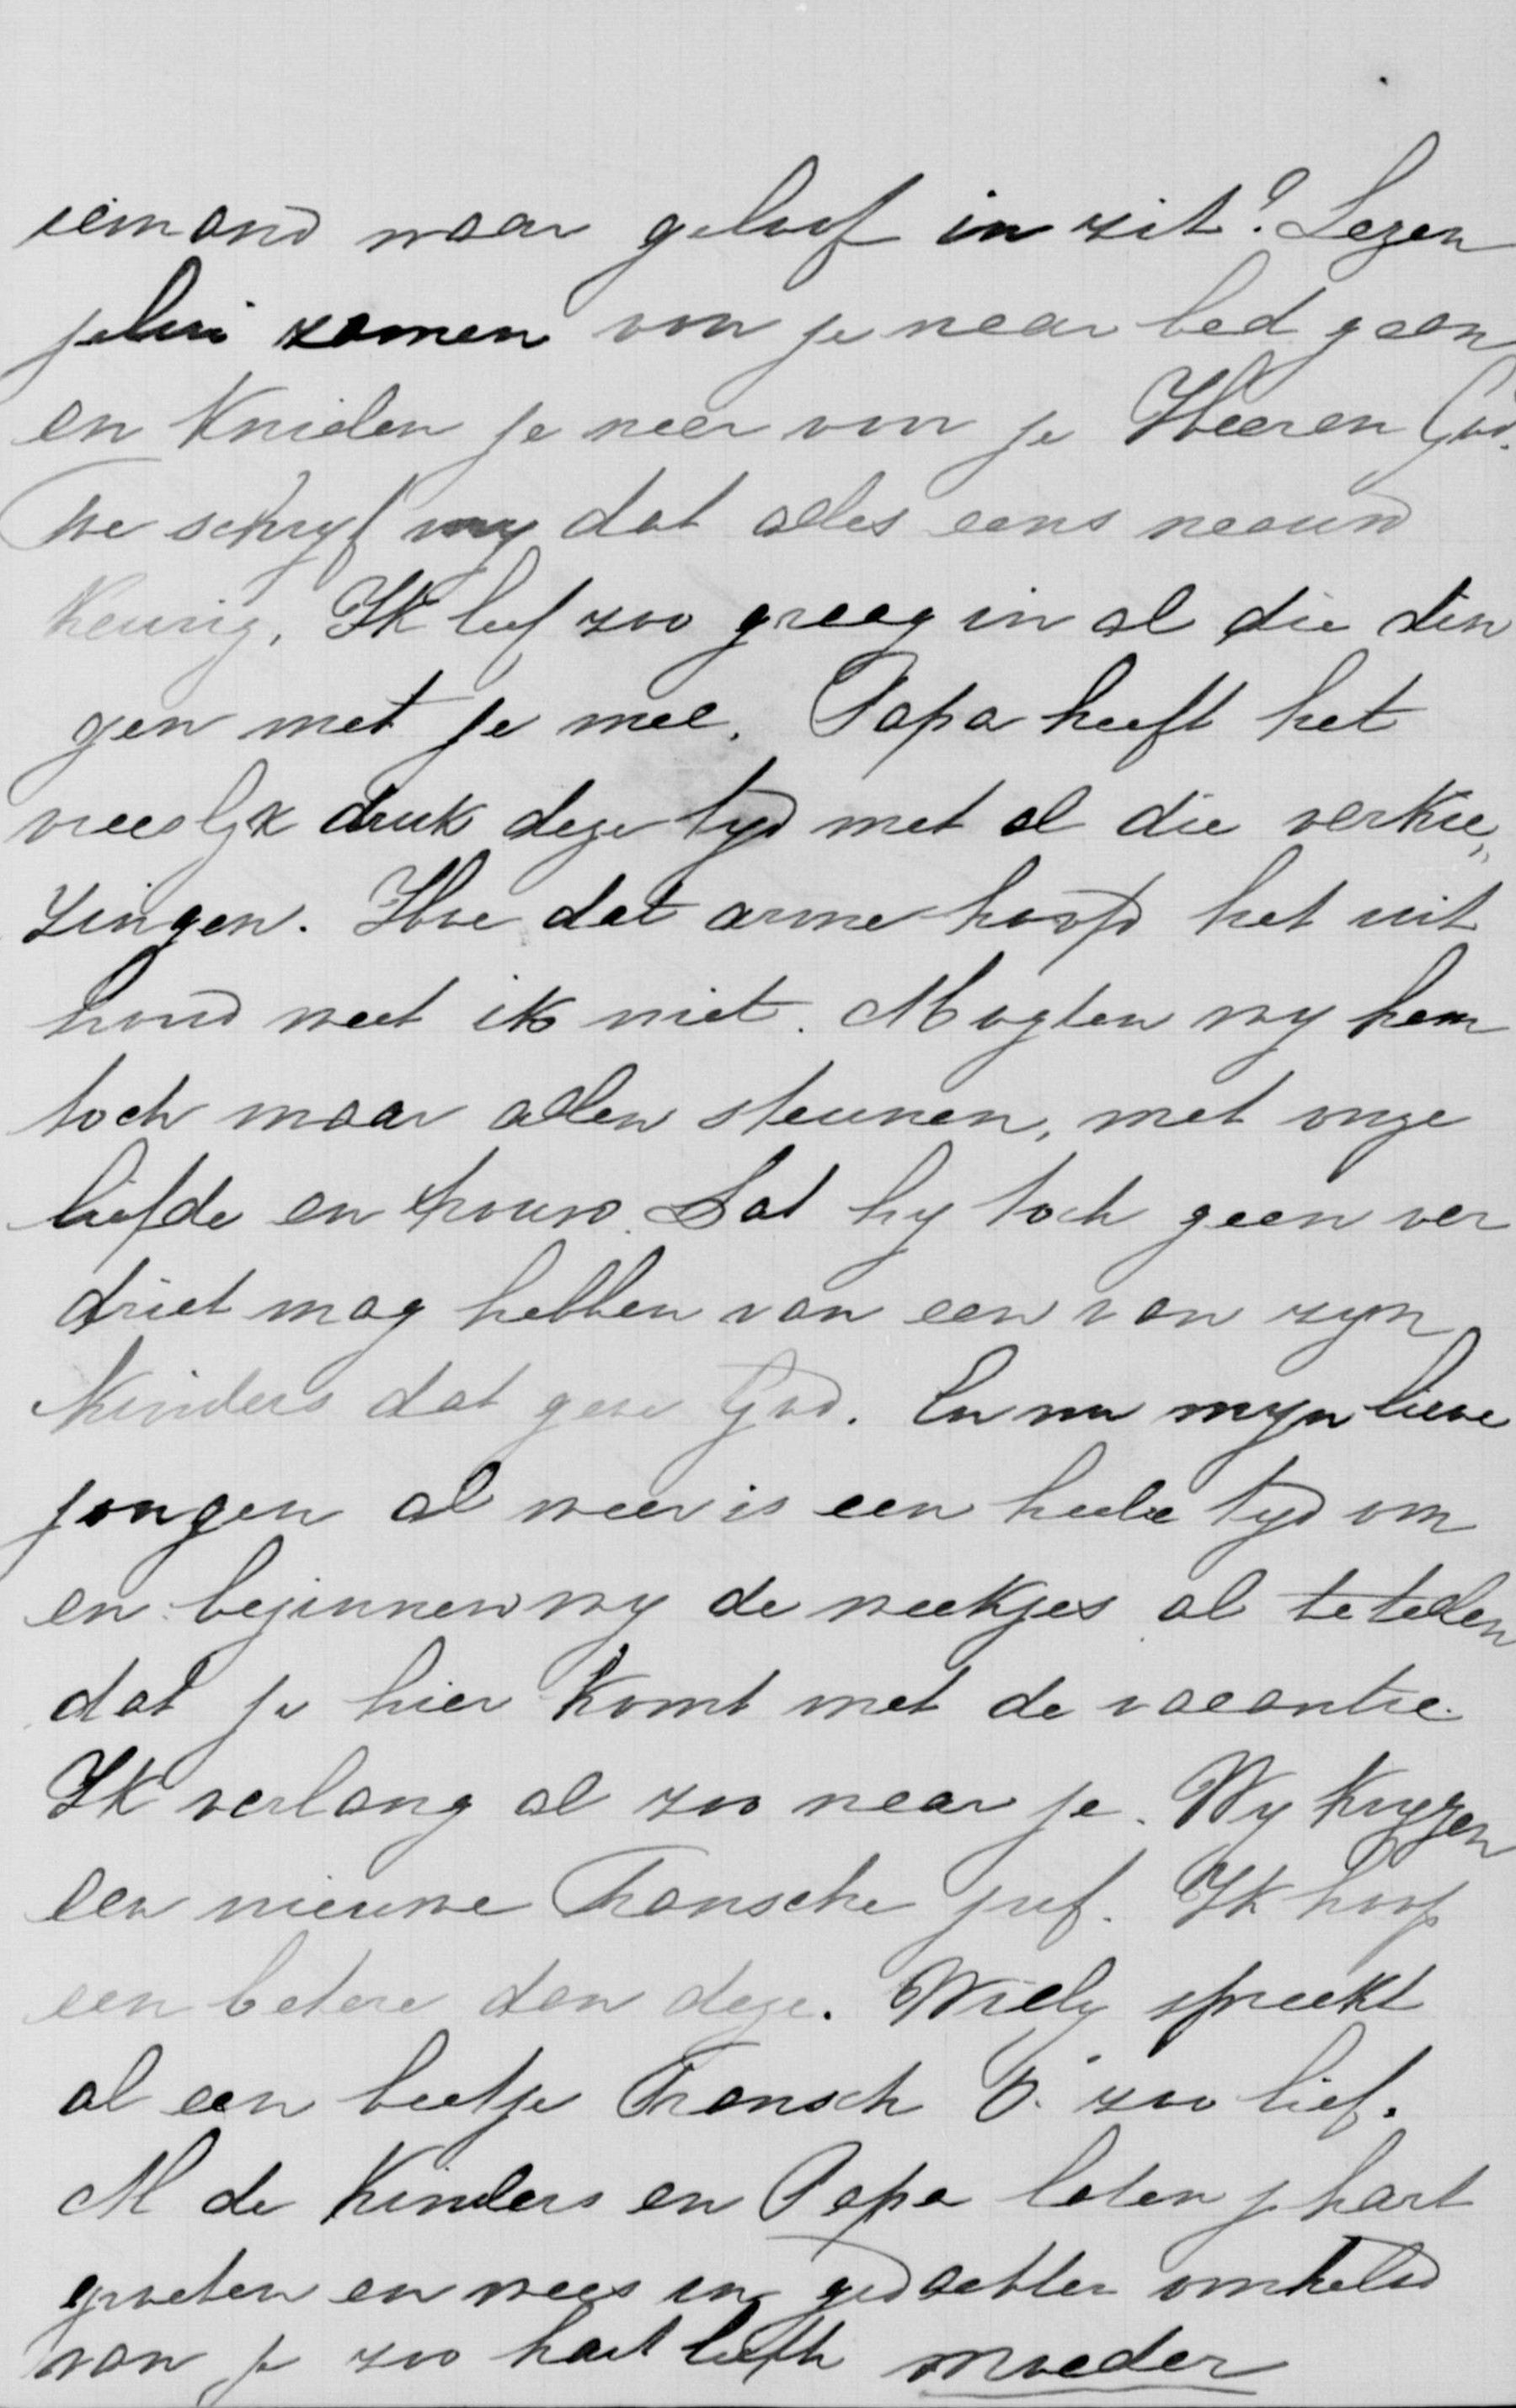 iemand waar geloof in zit? Lezen
jelui zamen voor je naar bed gaan
en Knielen je neer voor je Heeren God.
Toe schryf my dat alles eens naauw
Keurig. Ik leef zoo graag in al die din
gen met je mee. Papa heeft het
vreeslyk druk deze tyd met al die verkie„
zingen. Hoe dat arme hoofd het uit
houd weet ik niet. Mogten wy hem
toch maar allen steunen, met onze
liefde en trouw. Dat hy toch geen ver
driet mag hebben van een van zyn
Kinders dat geve God. En nu myn lieve
jongen al weer is een heele tyd om
en beginnen wy de weekjes al te tellen
dat je hier Komt met de vacantie.
Ik verlang al zoo naar je. Wy Krygen
een nieuwe Fransche juf. Ik hoop
een betere dan deze. Willy spreekt
al een beetje Fransch O. zoo lief.
Al de Kinders en Papa laten je hart
groeten en wees in gedachten omhelsd
van je zoo hart liefh moeder